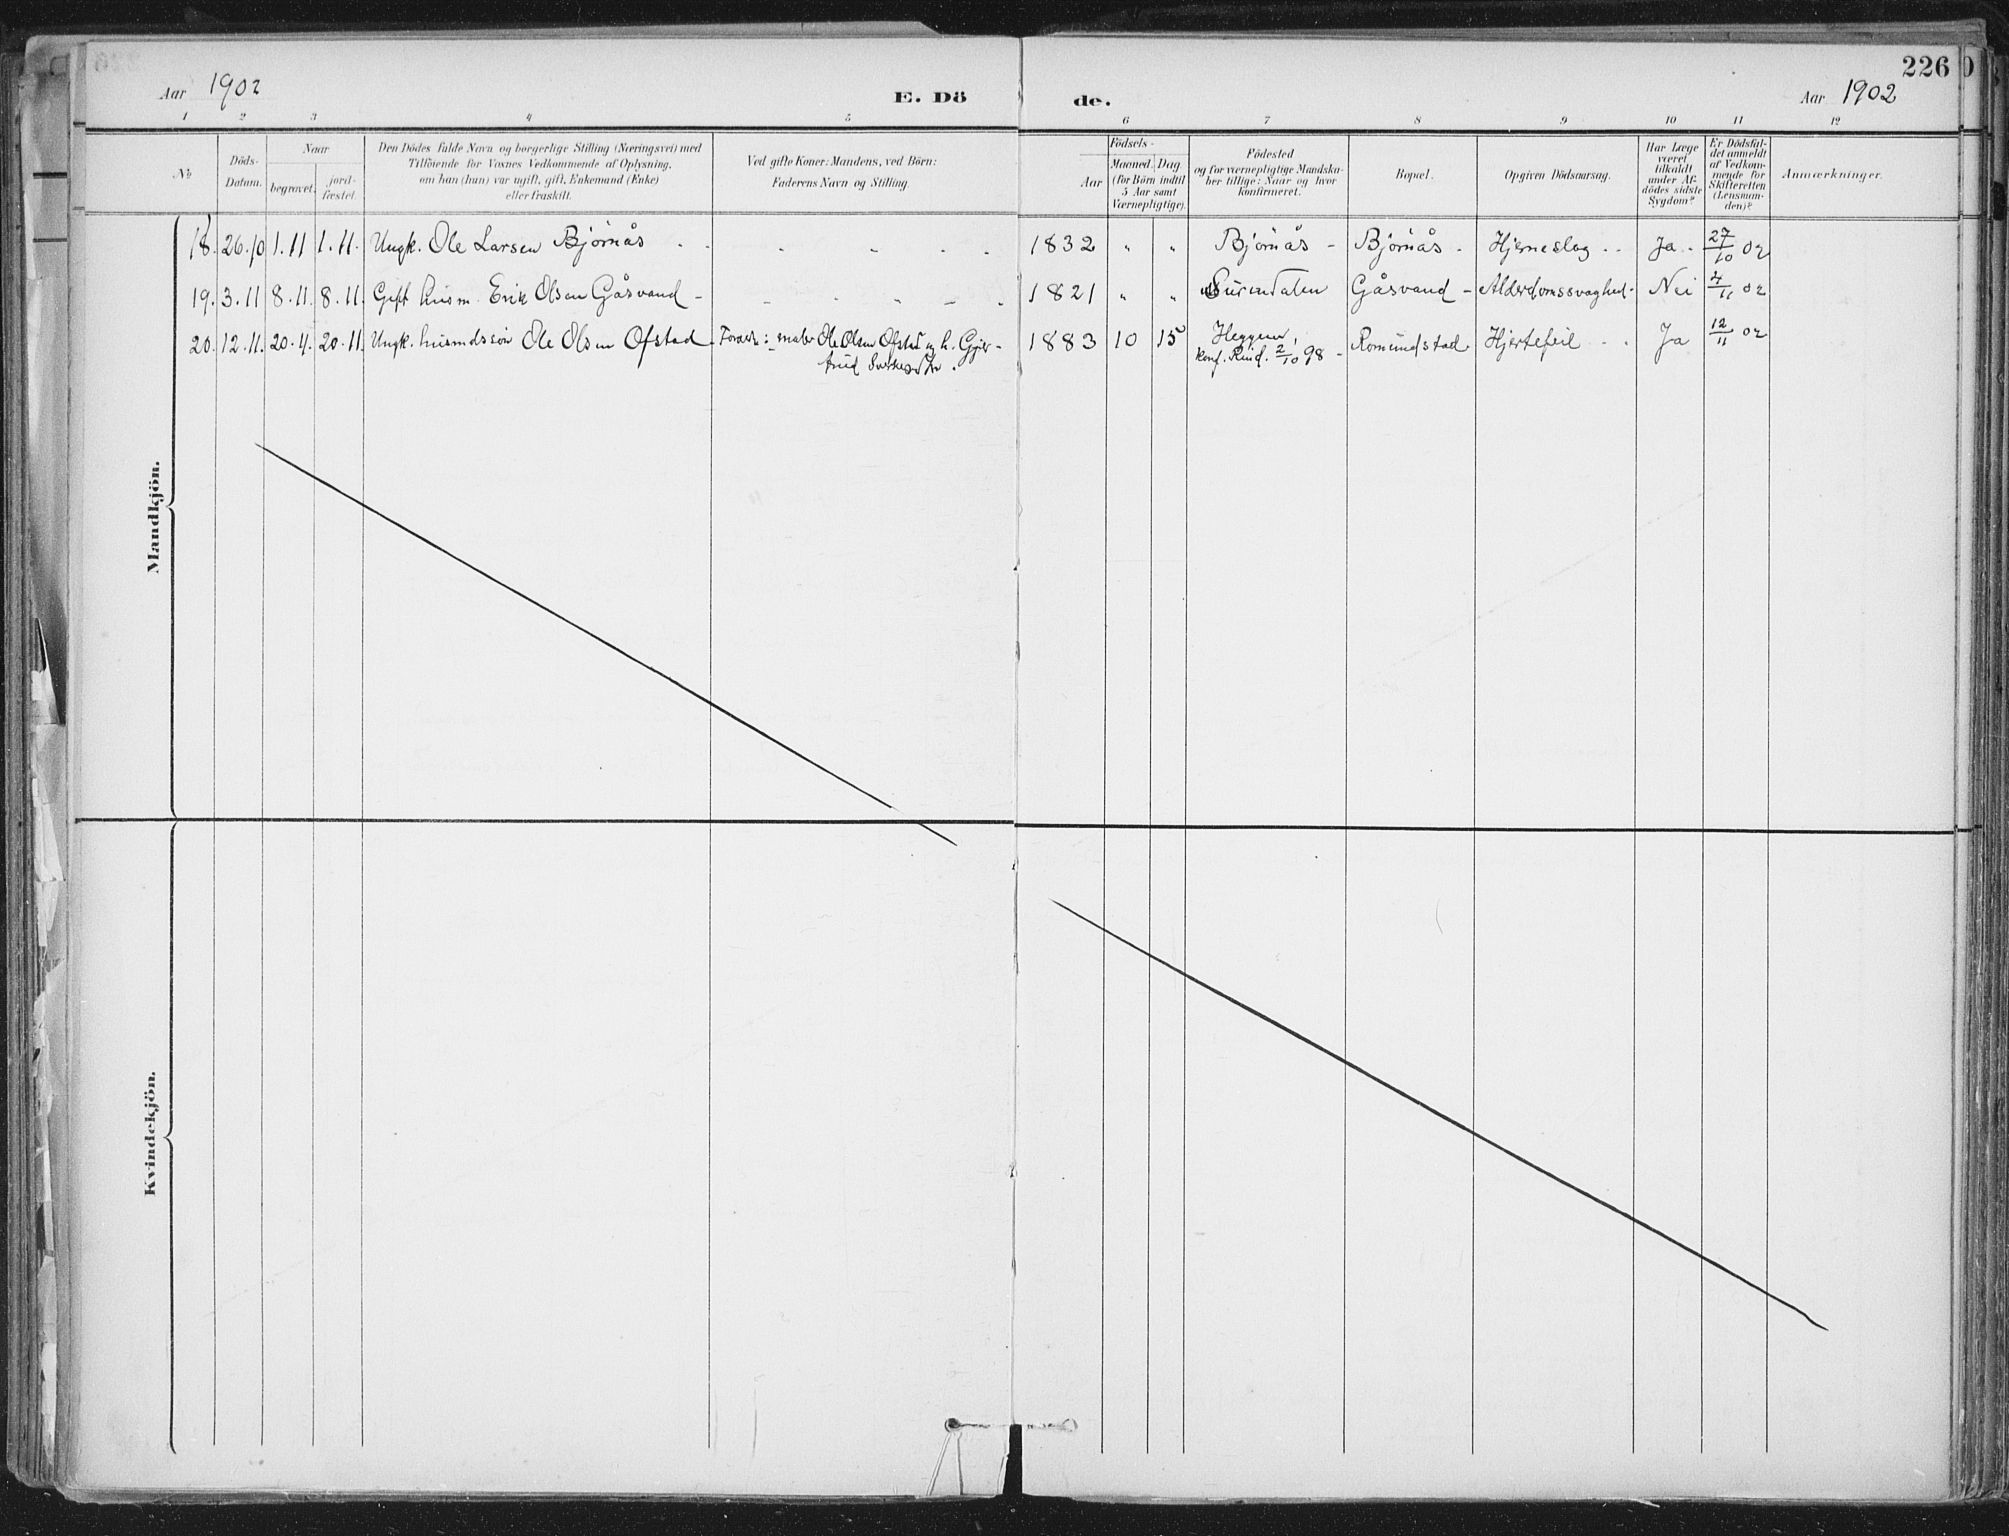 226
Aar 1902
E. Dö
de.
Aar 1902
1 2 3 4 5 6 7 8 9 10 11 12
№
Döds-
Datum.
Naar
begravet.
jord-
fæstet.
Den Dödes fulde Navn og borgerlige Stilling (Næringsvei) med
Tilföiende for Voxnes Vedkommende af Oplysning,
om han (hun) var ugift, gift, Enkemand (Enke)
eller fraskilt.
Ved gifte Koner: Mandens, ved Börn:
Faderens Navn og Stilling.
Födsels-
Aar
Maaned. Dag
(for Börn indtil
5 Aar samt
Værnepligtige).
Födested
og for værnepligtige Mandska-
ber tillige: Naar og hvor
konfirmeret.
Bopæl.
Opgiven Dödsaarsag.
Har Læge
været
tilkaldt
under Af-
dödes sidste
Sygdom?
Er Dödsfal-
det anmeldt
af Vedkom-
mende for
Skifteretten
(Lensman-
den)?
Anmærkninger.
18. 26.10 1.11 1.11. Ungk. Ole Larsen Bjørnås 1832 " " Bjørnås - Bjørnås - Hjerneslag Ja 27/10 02
19. 3.11 8.11. 8.11. Gift husm. Erik Olsen Gåsvand - 1821 " " Surendalen Gåsvand - Alderdomssvaghed - Nei 4/11 02
20. 12.11. 20.4. 20.11. Ungk. husmdssøn Ole Olsen Ofstad - Forældr: maler Ole Olsen Ofstad og h. Gjer- 1883 10 15 Heggem, Romundstad Hjertefeil Ja 12/11 02
trud
konf. Rind. 2/10 98 -
Mandkjön.
Kvindekjön.